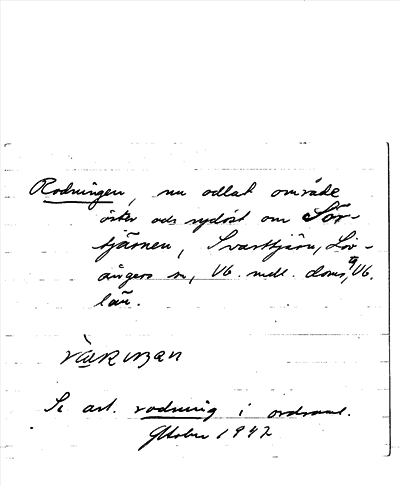 Rodningen, nu odlat område
öster och sydöst om Sör-
tjärnen, Svarttjärn, Löv-
ångers sn, Vb. mell. doms., Vb.
län.
Se art. rodning i ordsaml.
Oktober 1942